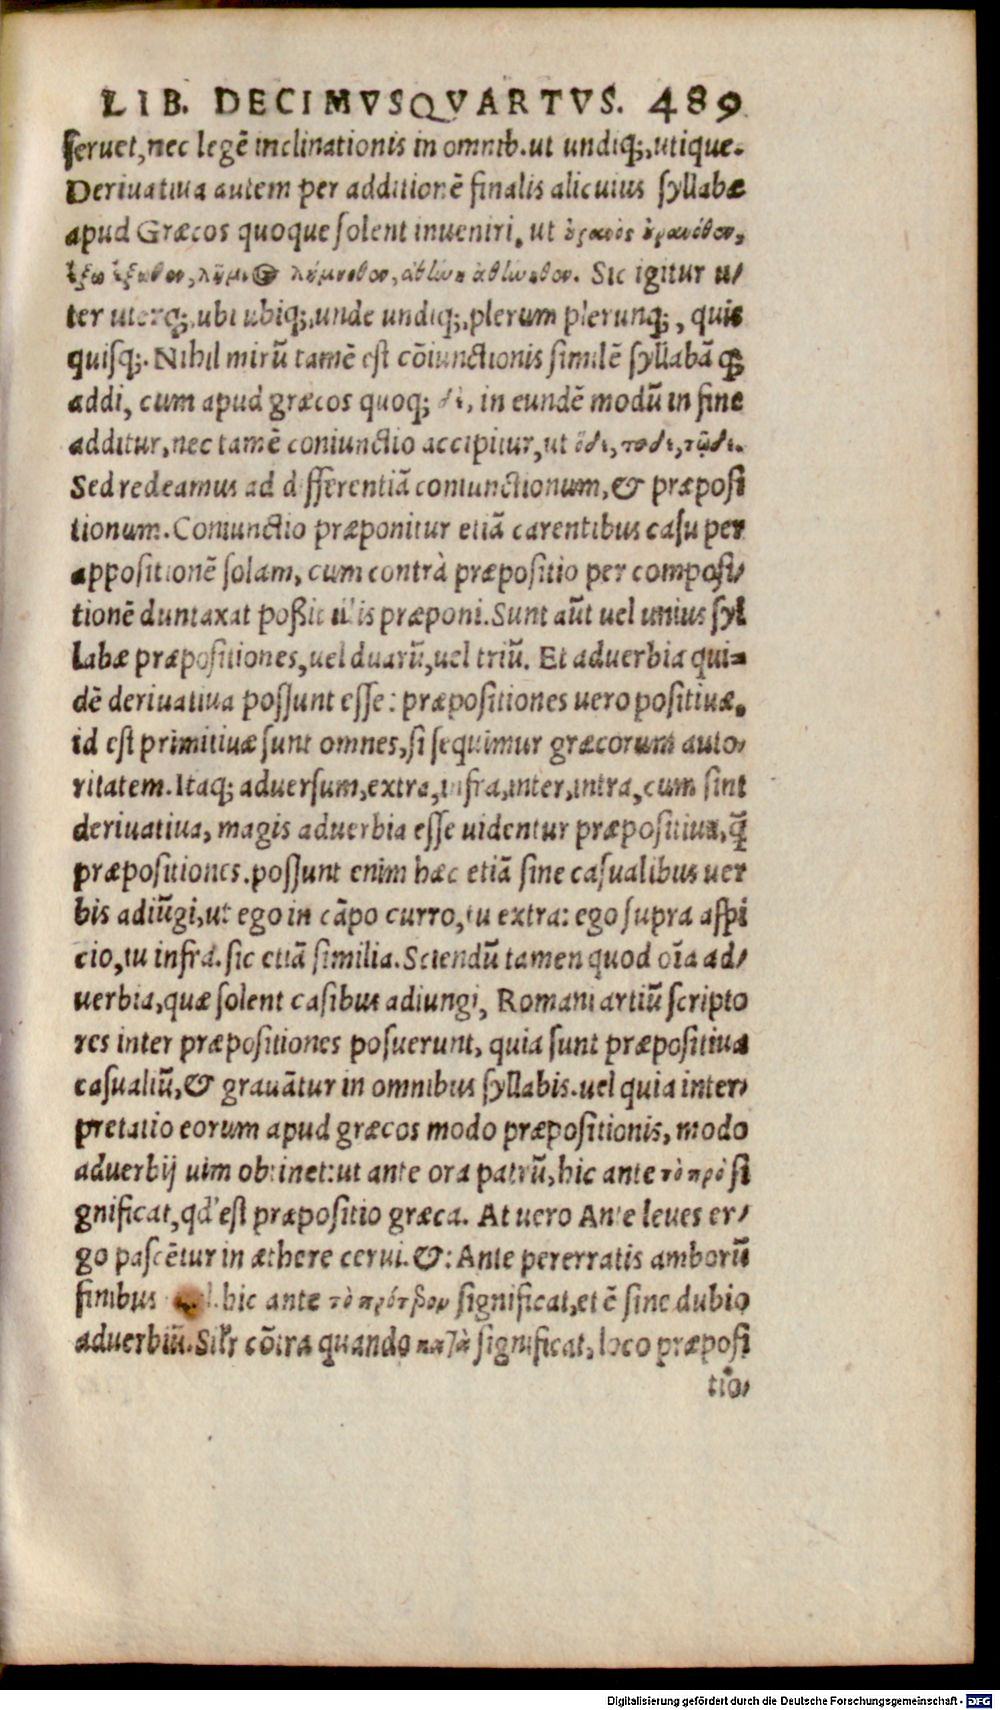 LIB. DECIMVSQVARTVS. 489
ſeruet, nec legẽ inclinationis in omnib. ut undiq;, utique.
Deriuatiua autem per additionẽ finalis alicuius ſyllabæ
apud Græcos quoque ſolent inueniri, ut
Sic igitur u/
ter uterq;, ubi ubiq;, unde undiq;, plerum plerunq;, quis
quiſq;. Nihil mirũ tamẽ eſt cõiunctionis ſimilẽ ſyllabã q;
addi, cum apud græcos quoq; δὶ, in eundẽ modũ in fine
additur, nec tamẽ coniunctio accipitur, ut ὅδι, τοδι, τῷδι.
Sed redeamus ad differentiã coniunctionum, & præpoſi
tionum. Coniunctio præponitur etiã carentibus caſu per
appoſitionẽ ſolam, cum contrà præpoſitio per compoſi/
tionẽ duntaxat poßit illis præponi. Sunt aũt uel unius ſyl
labæ præpoſitiones, uel duarũ, uel triũ. Et aduerbia qui-
dẽ deriuatiua poſſunt eſſe: præpoſitiones uero poſitiuæ.
id eſt primitiuæ ſunt omnes, ſi ſequimur græcorum auto/
ritatem. Itaq; aduerſum, extra, infra, inter, intra, cum ſint
deriuatiua, magis aduerbia eſſe uidentur præpoſitiua, q̃
præpoſitiones. poſſunt enim hæc etiã ſine caſualibus uer
bis adiũgi, ut ego in cãpo curro, tu extra: ego ſupra aſpi
cio, tu infra. ſic etiã ſimilia. Sciendũ tamen quod oĩa ad/
uerbia, quæ ſolent caſibus adiungi, Romani artiũ ſcripto
res inter præpoſitiones poſuerunt, quia ſunt præpoſitiua
caſualiũ, & grauãtur in omnibus ſyllabis. uel quia inter/
pretatio eorum apud græcos modo præpoſitionis, modo
aduerbij uim obtinet: ut ante ora patrũ, hic ante τὸ πρὸ ſi
gnificat, qd' eſt præpoſitio græca. At uero Ante leues er/
go paſcẽtur in æthere cerui. &: Ante pererratis amborũ
finibus hic ante τὸ πρότερον ſignificat, et ẽ ſine dubio
aduerbiũ. Silr cõtra quando κατὰ ſignificat, loco præpoſi
tio/
Digitalisierung gefördert durch die Deutsche Forschungsgemeinschaft - DFG